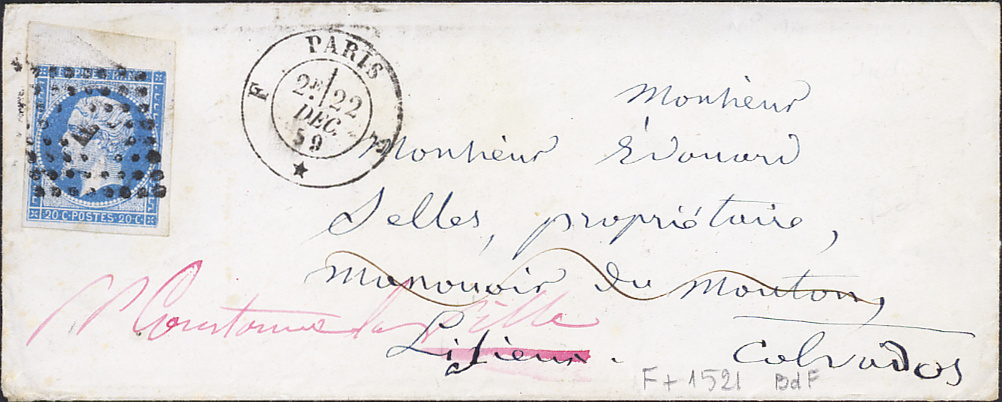 EMPIRE FRANC
20 C·POSTES·20 C
PARIS
F
2E 22
DEC.
59
Monsieur
Monsieur Edouard
Selles, propriétaire,
manouoir du Mouton,
Lisieux. Calvados
F+1521 BdF